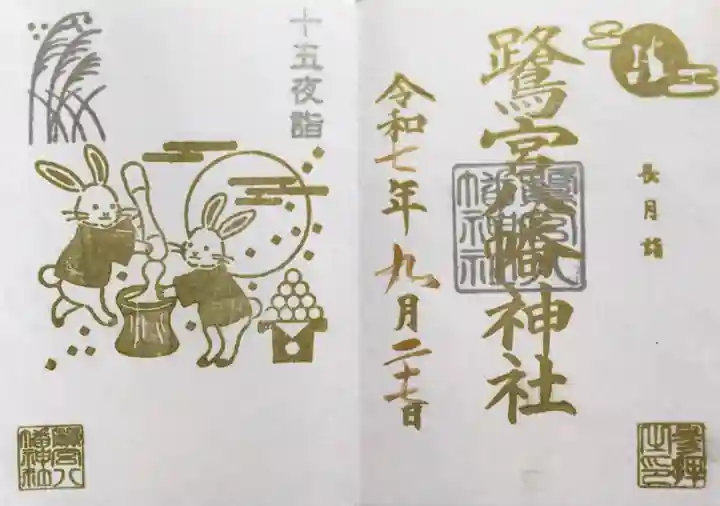 長月詣
鷺宮八幡神社
鷺宮八幡神社
令和七年九月二十七日
参拝之印
十五夜詣
鷺宮八幡神社